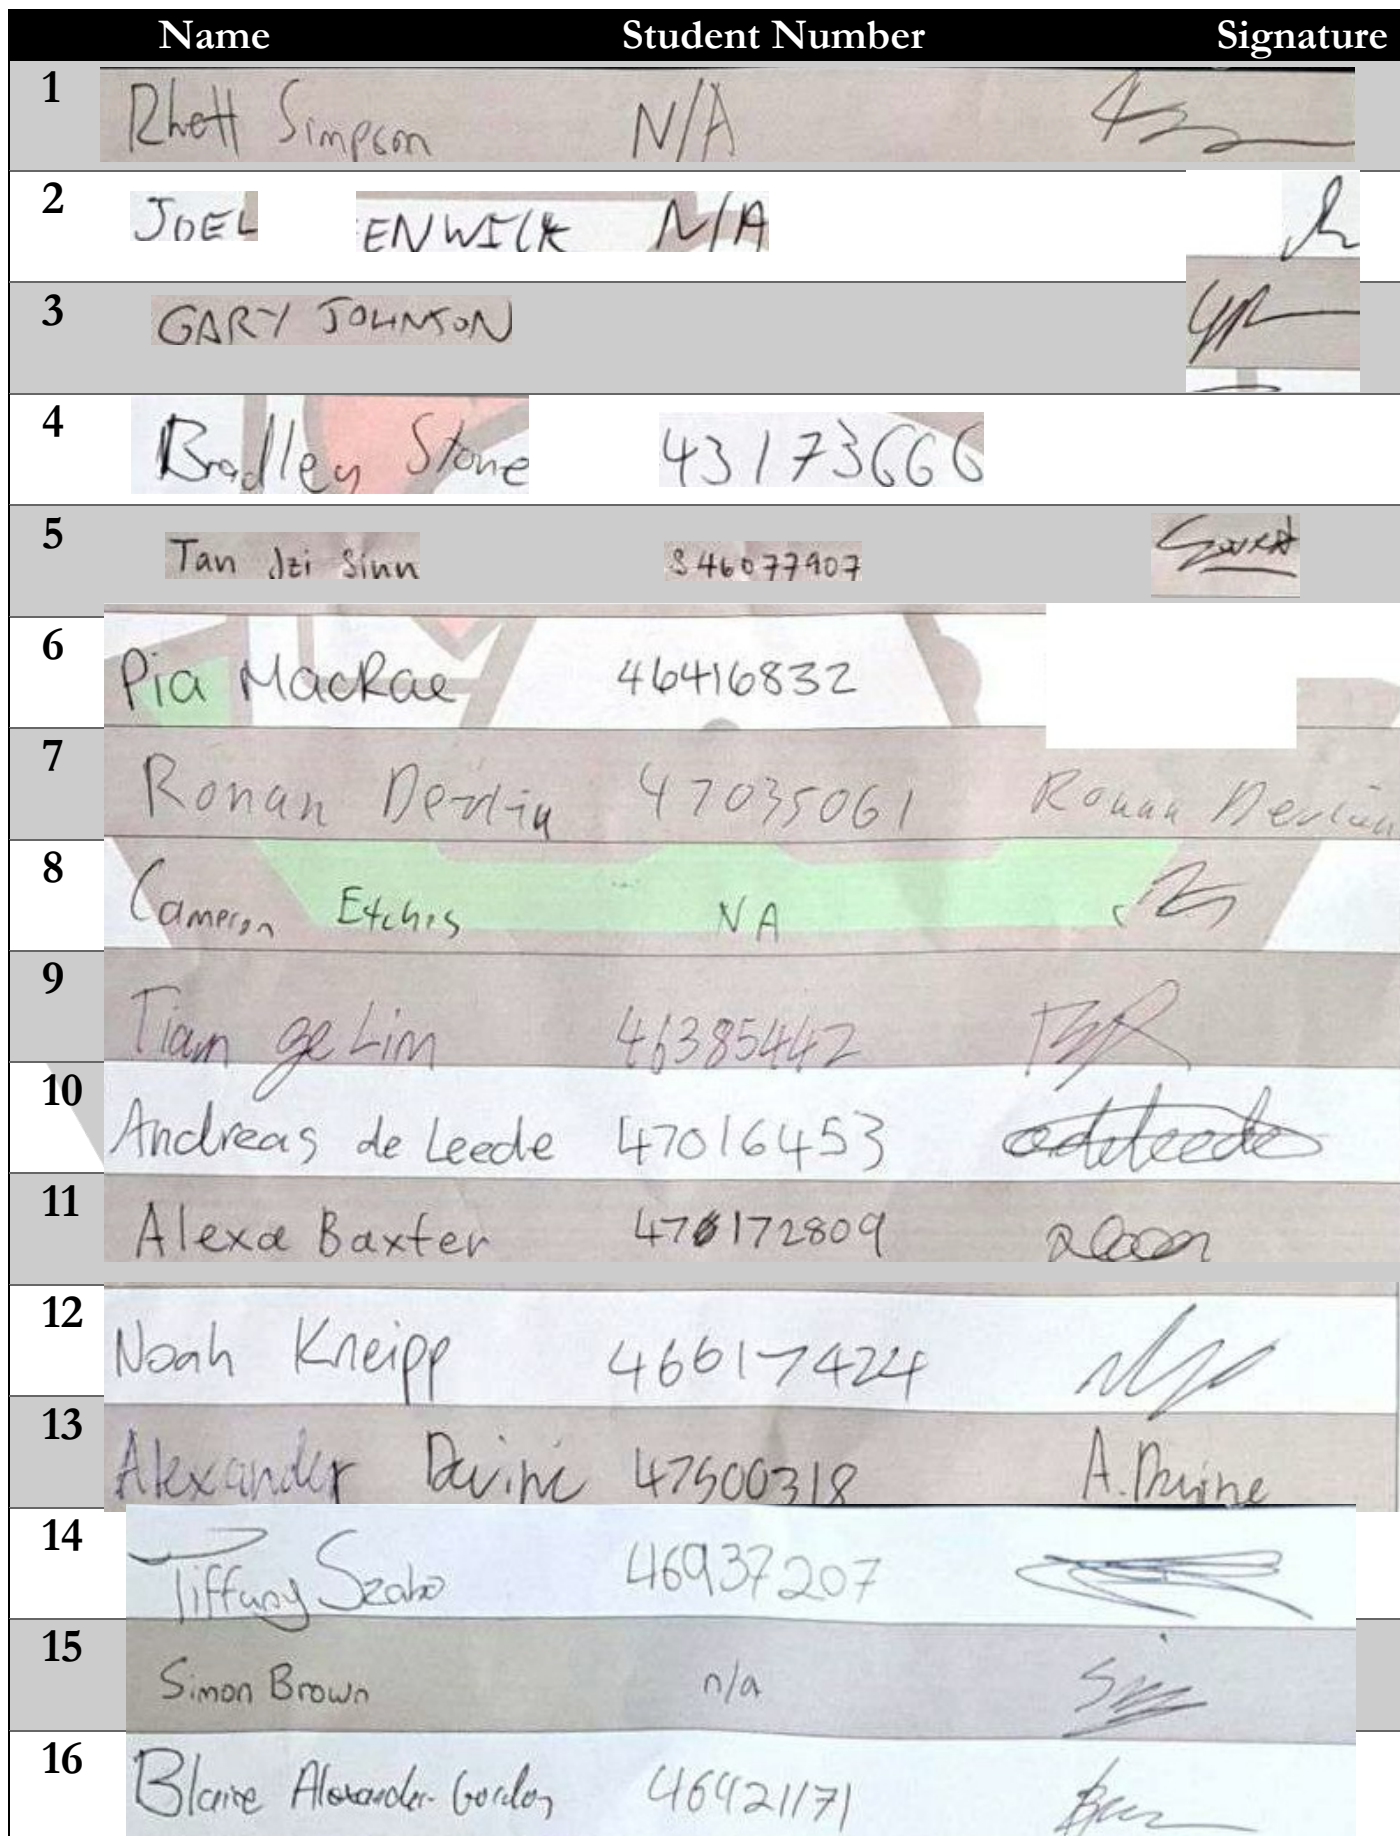 Name Student Number Signature
1 Rhett Simpson N/A
2 JOEL ENWICK N/A
3 GARY JOHNSON
4 Bradley Stone 43173666
5 Tan Jzi Sinn S46077907
6 Pia MacRae 46416832
7 Ronan Devlin 47035061 Ronan Devlin
8 Cameron Etches NA
9 Tian ge Lim 46385442
10 Andreas de Leede 47016453 adeleede
11 Alexa Baxter 470172809
12 Noah Kneipp 46617424
13 Alexander Devine 47500318 A.Devine
14 Tiffany Szabo 46937207
15 Simon Brown n/a
16 Blaise Alexander-Gordon 46421171